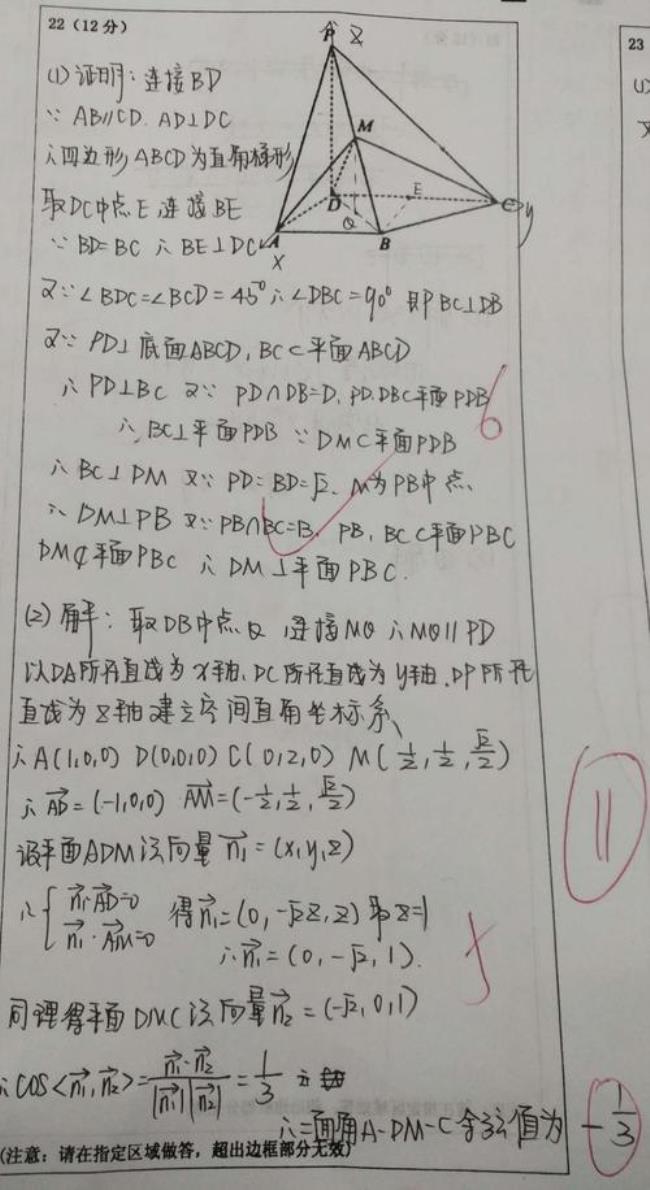 22(12分)
23
P Z
(1)证明:连接BD
∵ AB//CD. AD⊥DC
∴四边形ABCD为直角梯形
M
取DC中点E,连接BE
D
E
C y
Q
∵ BD=BC ∴ BE⊥DC
A
B
X
又∵∠BDC=∠BCD=45°∴∠DBC=90° 即BC⊥DB
又∵ PD⊥底面ABCD, BC⊂平面ABCD
∴ PD⊥BC 又∵ PD∩DB=D, PD.DB⊂平面PDB
6
∴ BC⊥平面PDB ∵DM⊂平面PDB
∴ BC⊥DM 又∵ PD=BD=√2, M为PB中点.
∴ DM⊥PB 又∵PB∩BC=B, PB, BC⊂平面PBC
DM⊄平面PBC ∴ DM⊥平面PBC.
(2)解:取DB中点Q,连接MQ ∴MQ//PD
以DA所在直线为x轴,DC所在直线为y轴,DP所在
直线为z轴建立空间直角坐标系、
∴A(1,0,0) D(0,0,0) C(0,2,0) M(1/2,1/2,√2/2)
∴ AD=(-1,0,0) AM=(-1/2,1/2,√2/2)
11
设平面ADM法向量 n₁=(x,y,z)
∴{ n₁·AD=0 得n₁=(0,-√2z,z) 取z=1
n₁·AM=0 ∴n₁=(0,-√2,1).
5
同理得平面DMC法向量n₂=(-√2,0,1)
∴cos<n₁,n₂>= n₁·n₂/|n₁||n₂| = 1/3 ∴
∴二面角A-DM-C余弦值为 -1/3
(注意:请在指定区域做答,超出边框部分无效)